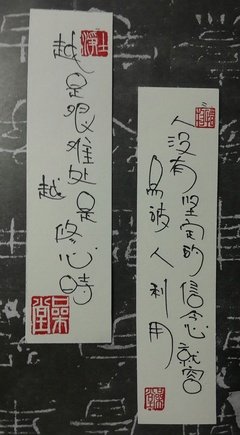 人没有坚定的信念就容
易被人利用
越是艰难处
越是修心時